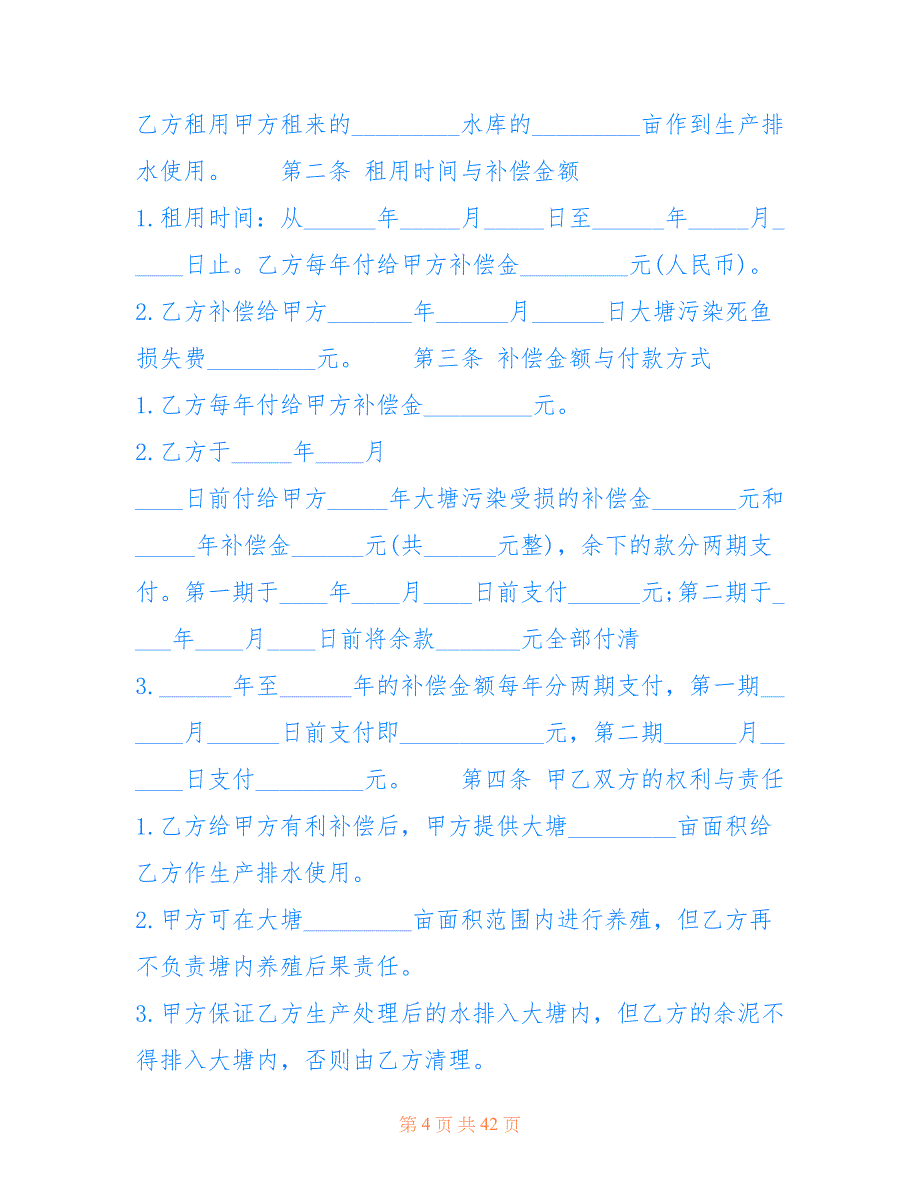 乙方租用甲方租来的_________水库的_________亩作到生产排
水使用。　　第二条 租用时间与补偿金额
1.租用时间：从______年_____月_____日至______年_____月_
____日止。乙方每年付给甲方补偿金_________元(人民币)。
2.乙方补偿给甲方_______年______月______日大塘污染死鱼
损失费_________元。　　第三条 补偿金额与付款方式
1.乙方每年付给甲方补偿金_________元。
2.乙方于_____年____月
____日前付给甲方_____年大塘污染受损的补偿金_______元和
_____年补偿金______元(共______元整)，余下的款分两期支
付。第一期于____年____月____日前支付______元;第二期于_
___年____月____日前将余款_______元全部付清
3.______年至______年的补偿金额每年分两期支付，第一期__
____月______日前支付即____________元，第二期______月__
____日支付_________元。　　第四条 甲乙双方的权利与责任
1.乙方给甲方有利补偿后，甲方提供大塘_________亩面积给
乙方作生产排水使用。
2.甲方可在大塘_________亩面积范围内进行养殖，但乙方再
不负责塘内养殖后果责任。
3.甲方保证乙方生产处理后的水排入大塘内，但乙方的余泥不
得排入大塘内，否则由乙方清理。
第 4 页 共 42 页